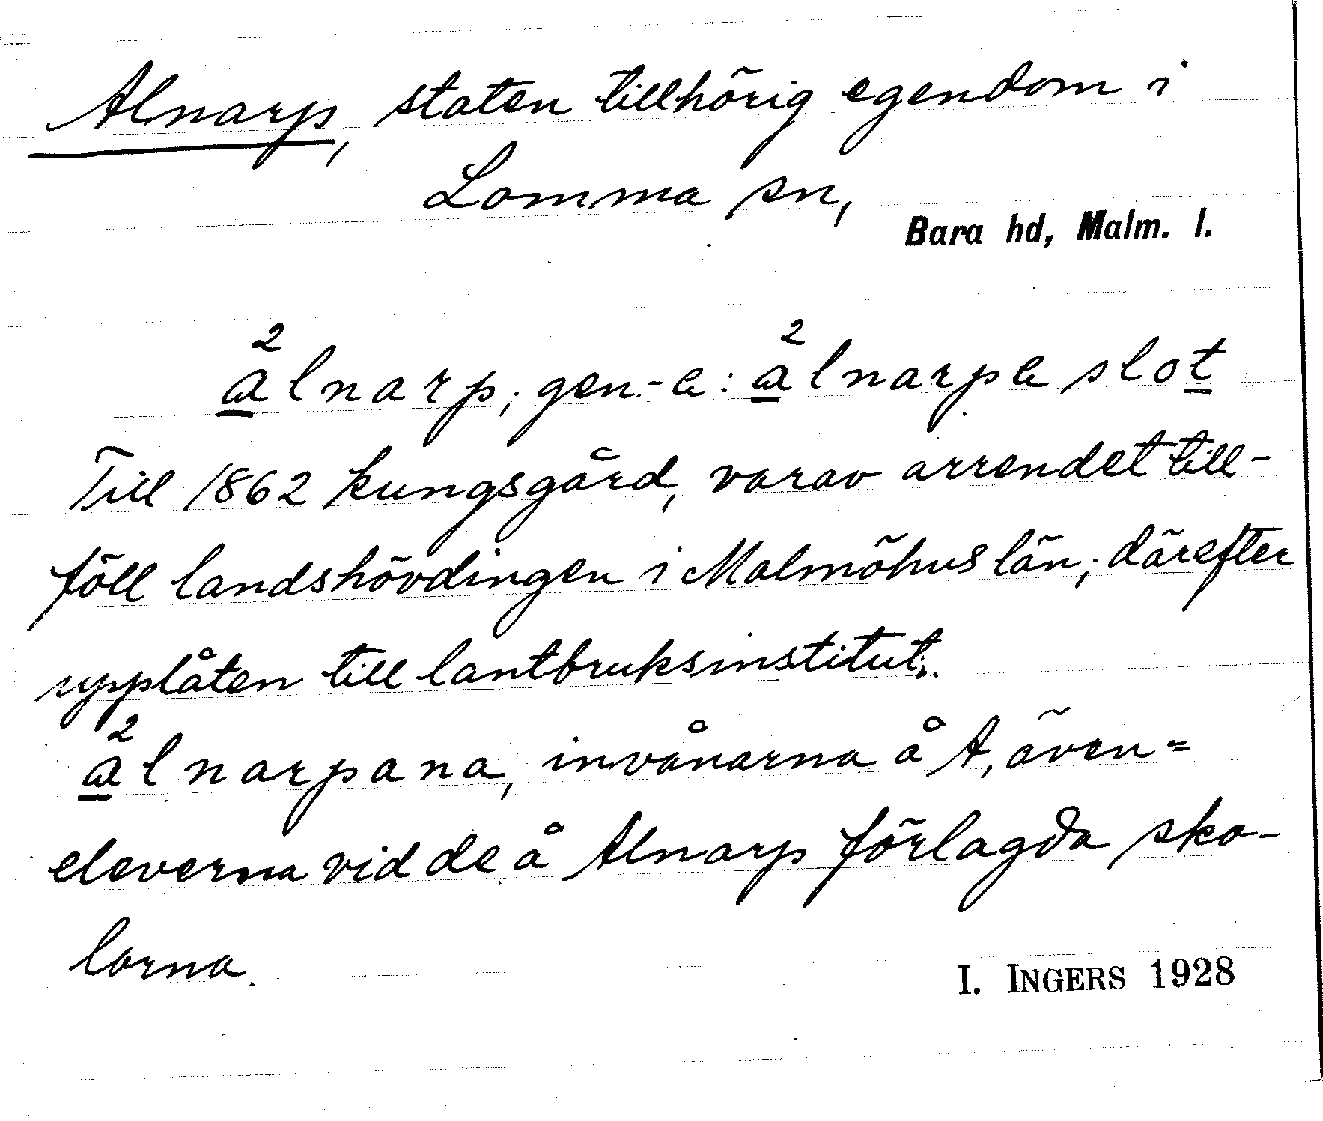 Alnarp, staten tillhörig egendom i
Lomma sn,
Bara hd, Malm. l.
²a̲lnarp; gen.-a: ²a̲lnarpa slot̲
Till 1862 kungsgård, varav arrendet till-
föll landshövdingen i Malmöhus län; därefter
upplåten till lantbruksinstitut.
²a̲lnarpana, invånarna å A, även=
eleverna vid de å Alnarp förlagda sko-
lorna.
I. INGERS 1928